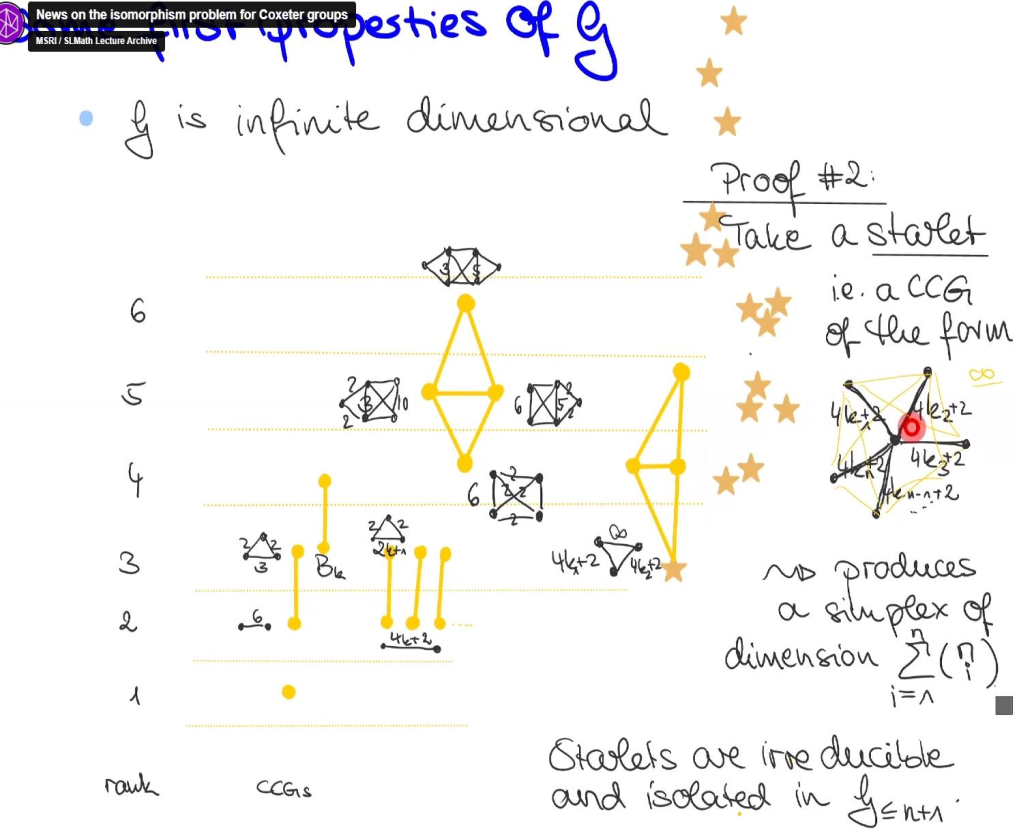 News on the isomorphism problem for Coxeter groups
MSRI / SLMath Lecture Archive
some first properties of G
• G is infinite dimensional
Proof #2:
Take a starlet
i.e. a CCG
of the form
∞
4k₁+2
4k₂+2
4k₃+2
4kₙ+2
4kₙ₋₁+2
...
⇝ produces
a simplex of
dimension Σ(n i)
n
i=1
Starlets are irreducible
and isolated in G≤n+1.
6
3 5
5
2 3 10
2
6 5 2
2
4
6 2 2 2
2
3
2 2
3
Bk
2 2
2k+1
∞
4k₁+2 4k₂+2
2
6
4k+2
....
1
rank CCGs